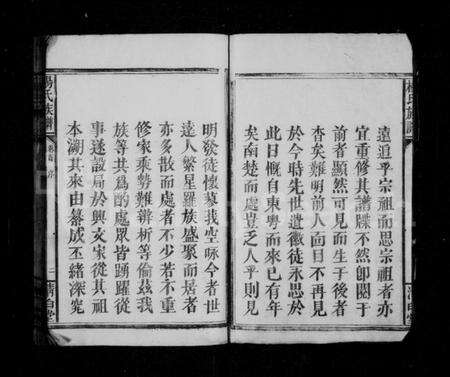 遠追乎宗祖而思宗祖者亦
宜重修其譜牒不然卽閱于
前者顯然可見而生于後者
杳矣難明前人面目不再見
於今時先世遺徽徒永思於
此日慨自東粵而來已有年
矣南楚而處豈乏人乎則見
明發徒懷慕我空咏今者世
逵人繁星羅族盛聚而居者
亦多散而處者不少若不重
修家乘勢難辨析等偷茲我
族等共爲酌處眾皆踴躍從
事遂設局於興文家從其祖
本溯其來由纂成丕緒深究
楊氏族譜
卷首 序
二
清白堂